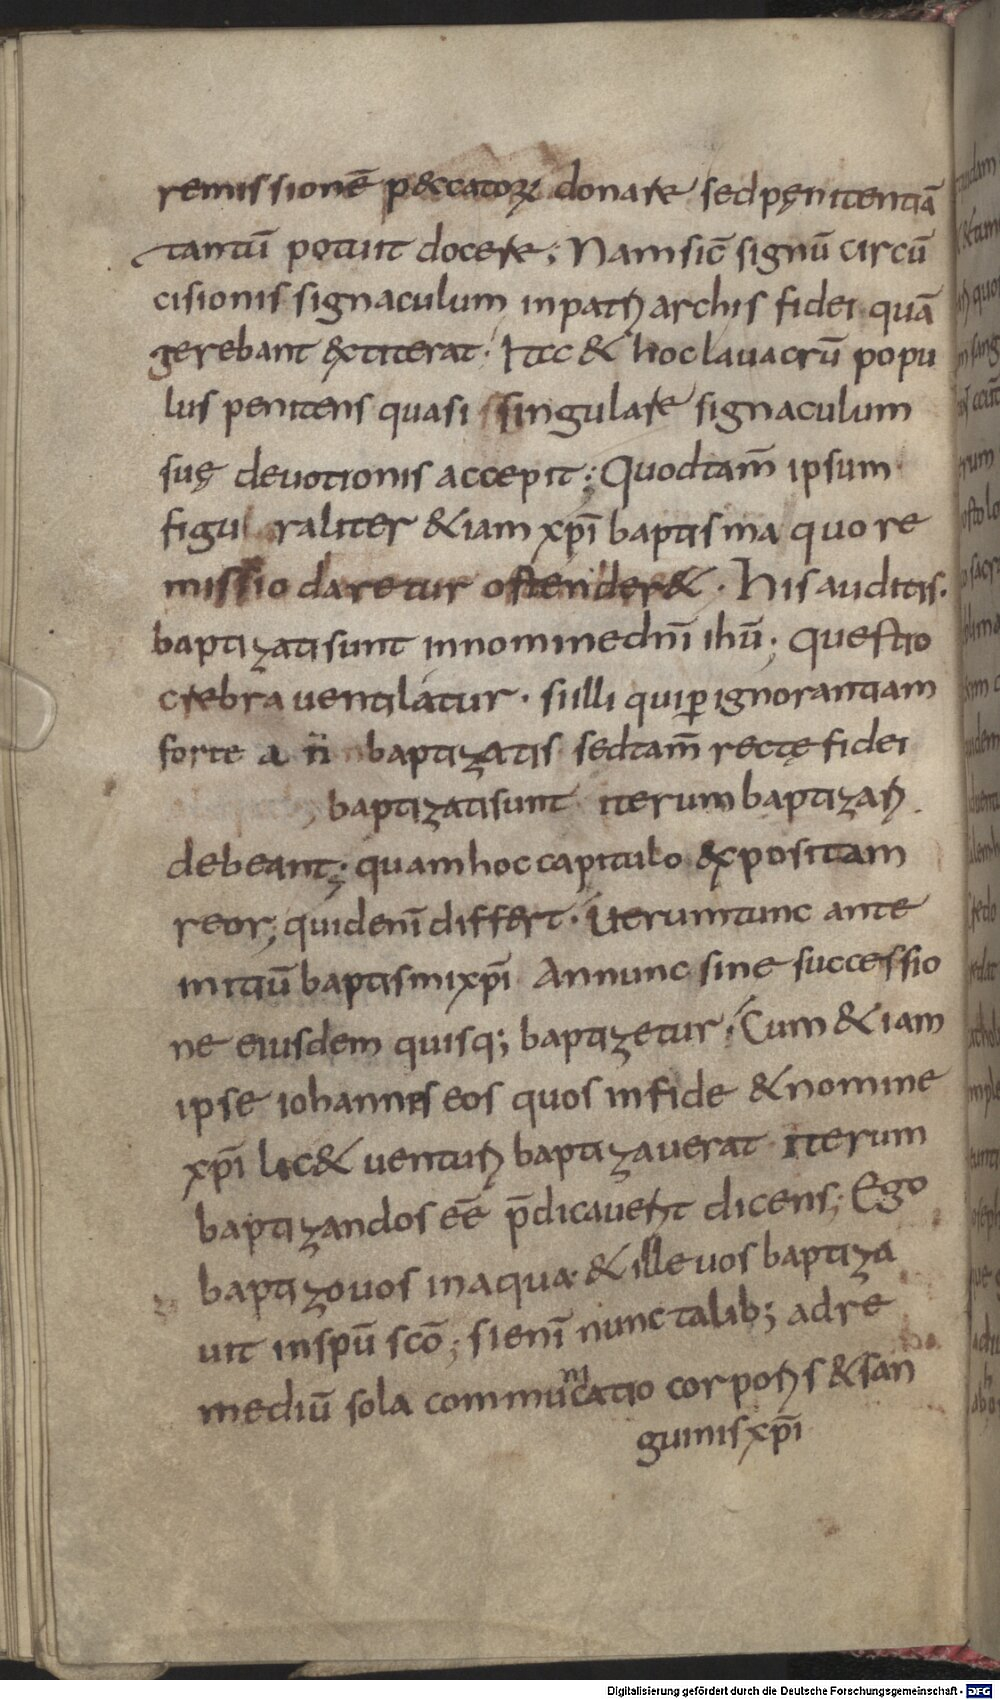 remissionē p&catoꝝ donare sedpęnitentiā
tantū potuit docere; Nam sic̄ signū circū
cisionis signaculum inpatriarchis fidei quā
gerebant extiterat. Ita & hoc lauacrū popu
lus penitens quasi singulare signaculum
suę deuotionis accepit; Quodtam̄ ipsum
figuraliter &iam xp̄i baptisma quo re
missio daretur ostender&. His auditis.
baptizati sunt innomine dn̄i ihū; Questio
crebra uentilatur. si illi qui ꝑignorantiam
forte a n̄ baptizatis sedtam̄ rectę fidei
baptizatisunt iterum baptizari
debeant; quam hoc capitulo expositam
reor; quid enī differt. Uerum tunc ante
initiū baptismi xp̄i An nunc sine successio
ne eiusdem quisq; baptizetur. Cum &iam
ipse iohannes eos quos infide & nomine
xp̄i lic& uenturi baptizauerat Iterum
baptizandos eē p̄dicauerit dicens; Ego
baptizo uos inaqua. & ille uos baptiza
uit inspū scō; si enī nunc talib; adre
mediū sola communicatio corporis & san
guinis xp̄i
Digitalisierung gefördert durch die Deutsche Forschungsgemeinschaft - DFG